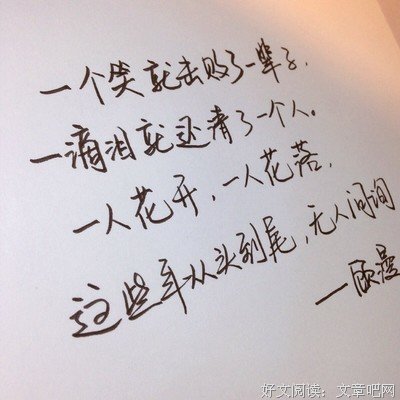 一个笑就击败了一辈子,
一滴泪就还清了一个人。
一人花开,一人花落,
这些年从头到尾,无人问询
—顾漫
好文阅读:文章吧网